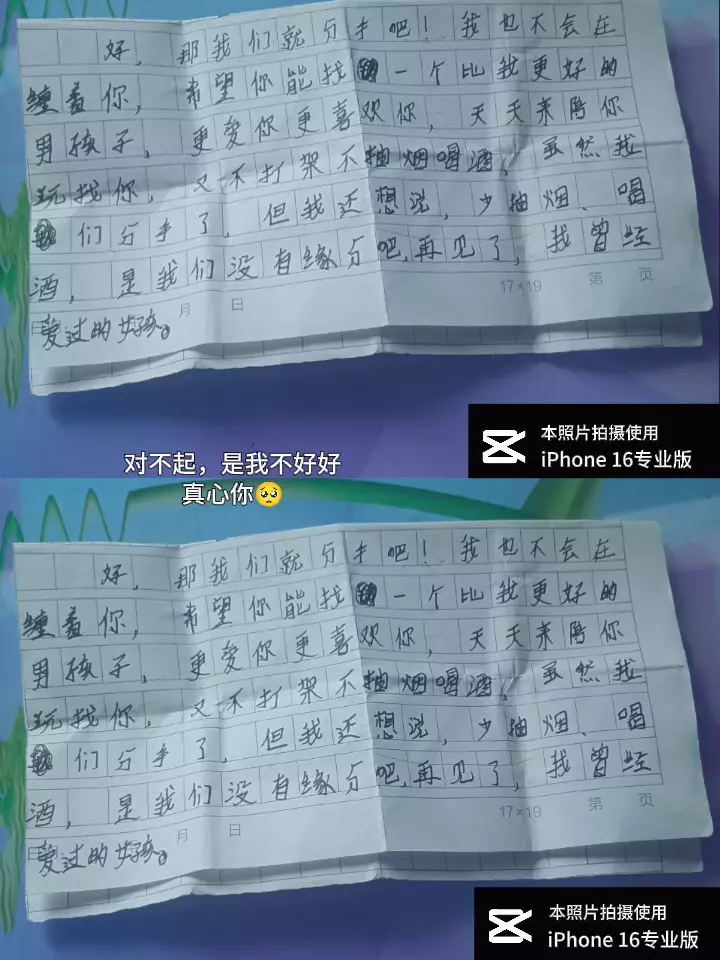 好，那我们就分手吧！我也不会在
缠着你，希望你能找一个比我更好的
男孩子，更爱你更喜欢你，天天来陪你
玩找你，又不打架不抽烟喝酒，虽然我
们分手了，但我还想说，少抽烟、喝
酒，是我们没有缘分吧，再见了，我曾经
爱过的女孩。
月 日
17×19 第 页
本照片拍摄使用
iPhone 16专业版
对不起，是我不好好
真心你🥺
好，那我们就分手吧！我也不会在
缠着你，希望你能找一个比我更好的
男孩子，更爱你更喜欢你，天天来陪你
玩找你，又不打架不抽烟喝酒，虽然我
们分手了，但我还想说，少抽烟、喝
酒，是我们没有缘分吧，再见了，我曾经
爱过的女孩。
月 日
17×19 第 页
本照片拍摄使用
iPhone 16专业版